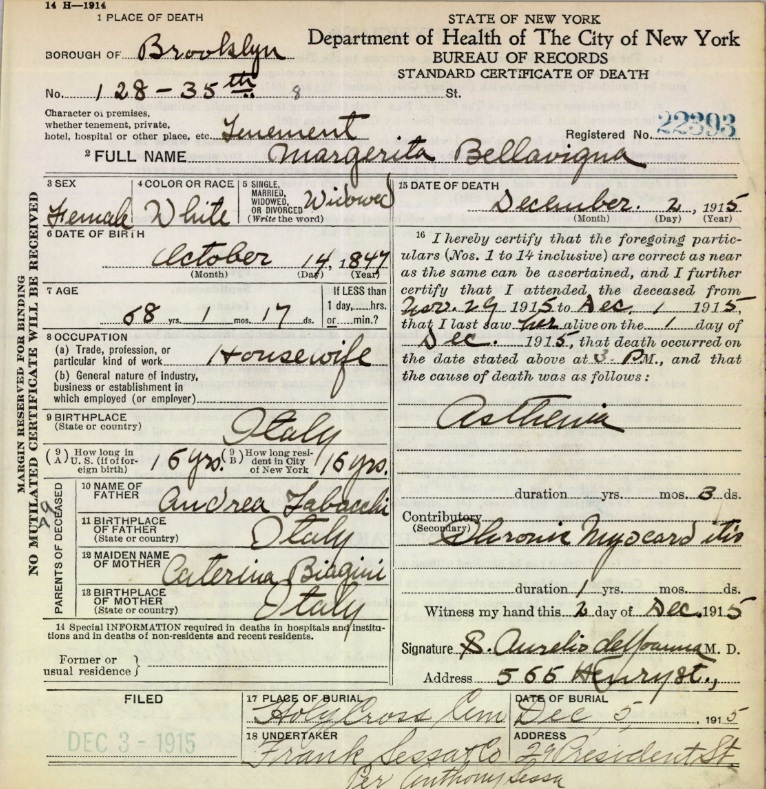 14 H—1914
1 PLACE OF DEATH
STATE OF NEW YORK
Department of Health of The City of New York
BUREAU OF RECORDS
STANDARD CERTIFICATE OF DEATH
BOROUGH OF Brooklyn
No. 128 - 35th 8 St.
Character of premises,
whether tenement, private,
hotel, hospital or other place, etc. Tenement
Registered No. 22393
2 FULL NAME Margerita Bellavigna
MARGIN RESERVED FOR BINDING
NO MUTILATED CERTIFICATE WILL BE RECEIVED
3 SEX Female
4 COLOR OR RACE White
5 SINGLE, MARRIED, WIDOWED, OR DIVORCED (Write the word) Widowed
6 DATE OF BIRTH
October 14, 1847
(Month) (Day) (Year)
7 AGE
68 yrs. 1 mos. 17 ds.
If LESS than
1 day,....hrs.
or ....min.?
8 OCCUPATION
(a) Trade, profession, or
particular kind of work Housewife
(b) General nature of industry,
business or establishment in
which employed (or employer)
9 BIRTHPLACE
(State or country) Italy
(9 A) How long in U. S. (if of foreign birth) 16 yrs.
(9 B) How long resident in City of New York 16 yrs.
PARENTS OF DECEASED
10 NAME OF FATHER Andrea Tabacchi
11 BIRTHPLACE OF FATHER (State or country) Italy
12 MAIDEN NAME OF MOTHER Caterina Biagini
13 BIRTHPLACE OF MOTHER (State or country) Italy
14 Special INFORMATION required in deaths in hospitals and institu-
tions and in deaths of non-residents and recent residents.
Former or
usual residence }
15 DATE OF DEATH
December. 2, 1915
(Month) (Day) (Year)
16 I hereby certify that the foregoing partic-
ulars (Nos. 1 to 14 inclusive) are correct as near
as the same can be ascertained, and I further
certify that I attended the deceased from
Nov. 29 1915 to Dec. 1 1915,
that I last saw her alive on the 1 day of
Dec. 1915, that death occurred on
the date stated above at 3 P.M., and that
the cause of death was as follows:
Asthenia
duration yrs. mos. 3 ds.
Contributory
(Secondary) Chronic Myocarditis
duration 1 yrs. mos. ds.
Witness my hand this 2 day of Dec. 1915
Signature S. Aurelio M. D.
Address 565 Henry st.,
FILED
DEC 3 - 1915
17 PLACE OF BURIAL
Holy Cross Cem
DATE OF BURIAL
Dec 5, 1915
18 UNDERTAKER
Frank Sessa & Co
ADDRESS
29 President St
Per Anthony Sessa